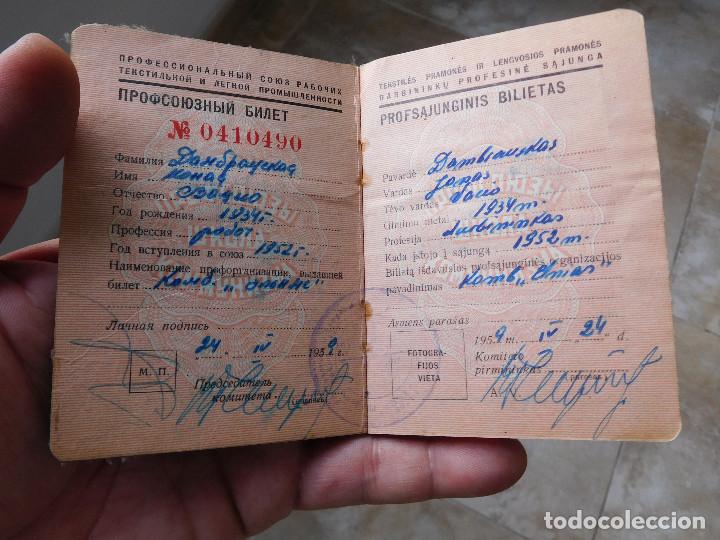 ПРОФЕССИОНАЛЬНЫЙ СОЮЗ РАБОЧИХ
ТЕКСТИЛЬНОЙ И ЛЕГКОЙ ПРОМЫШЛЕННОСТИ
ПРОФСОЮЗНЫЙ БИЛЕТ
№ 0410490
Фамилия
Имя
Отчество
Год рождения 1934 г.
Профессия рабоч.
Год вступления в союз 1952 г.
Наименование профорганизации, выдавшей
билет Комб.
Личная подпись
24 IV 1959 г.
М. П.
Председатель
комитета
TEKSTILĖS PRAMONĖS IR LENGVOSIOS PRAMONĖS
DARBININKŲ PROFESINĖ SĄJUNGA
PROFSĄJUNGINIS BILIETAS
Pavardė Dambrauskas
Vardas Jonas
Tėvo vardas
Gimimo metai 1934 m.
Profesija darbininkas
Kada įstojo į sąjungą 1952 m.
Bilietą išdavusios profsąjunginės organizacijos
pavadinimas Komb.
Asmens parašas
1959 m. IV 24 d.
FOTOGRA-
FIJOS
VIETA
Komiteto
pirmininkas
A. V.
todocoleccion.net